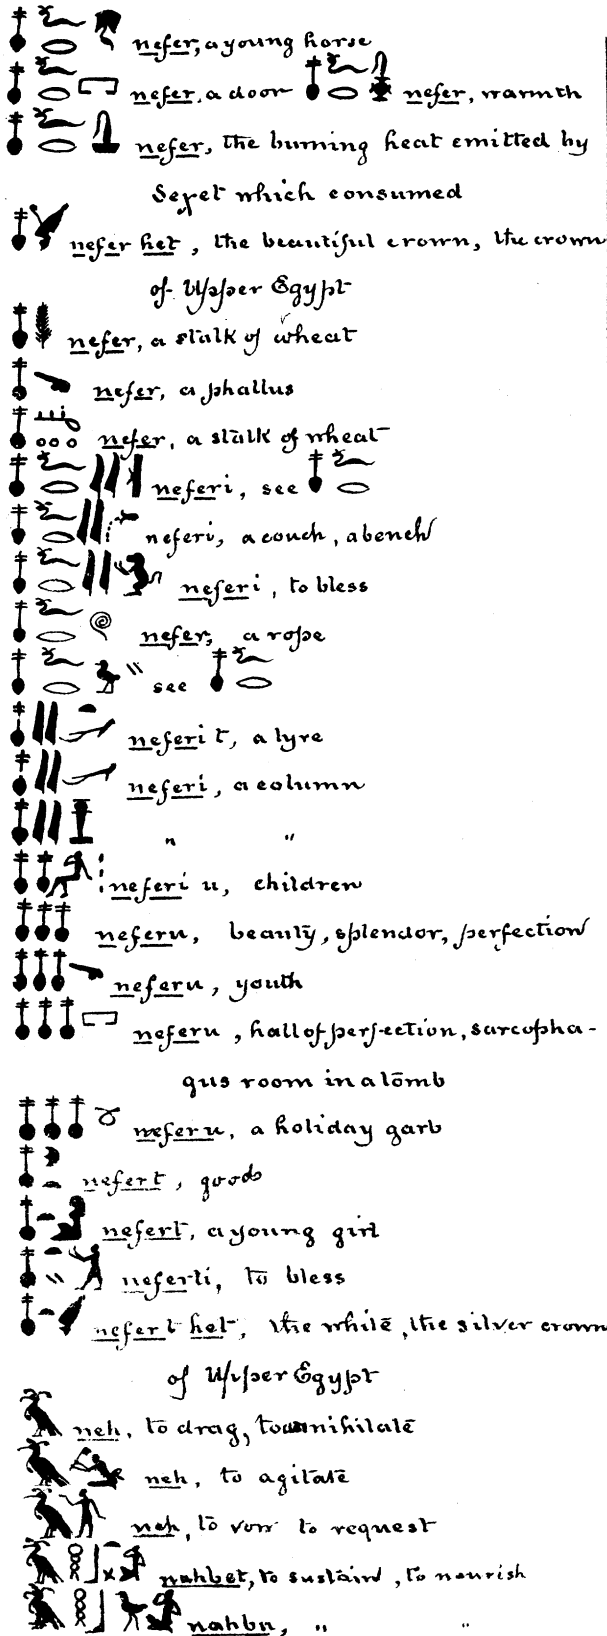 nefer, a young horse
nefer, a door nefer, warmth
nefer, the burning heat emitted by
Seχet which consumed
nefer het, the beautiful crown, the crown
of Upper Egypt
nefer, a stalk of wheat
nefer, a phallus
nefer, a stalk of wheat
neferi, see
neferi, a couch, a bench
neferi, to bless
nefer, a rope
see
neferi t, a lyre
neferi, a column
„ „
neferi u, children
neferu, beauty, splendor, perfection
neferu, youth
neferu, hall of perfection, sarcopha-
gus room in a tomb
neferu, a holiday garb
nefert, good
nefert, a young girl
neferti, to bless
nefert het, the white, the silver crown
of Upper Egypt
neh, to drag, to annihilate
neh, to agitate
neh, to vow to request
nahbet, to sustain, to nourish
nahbu, „ „